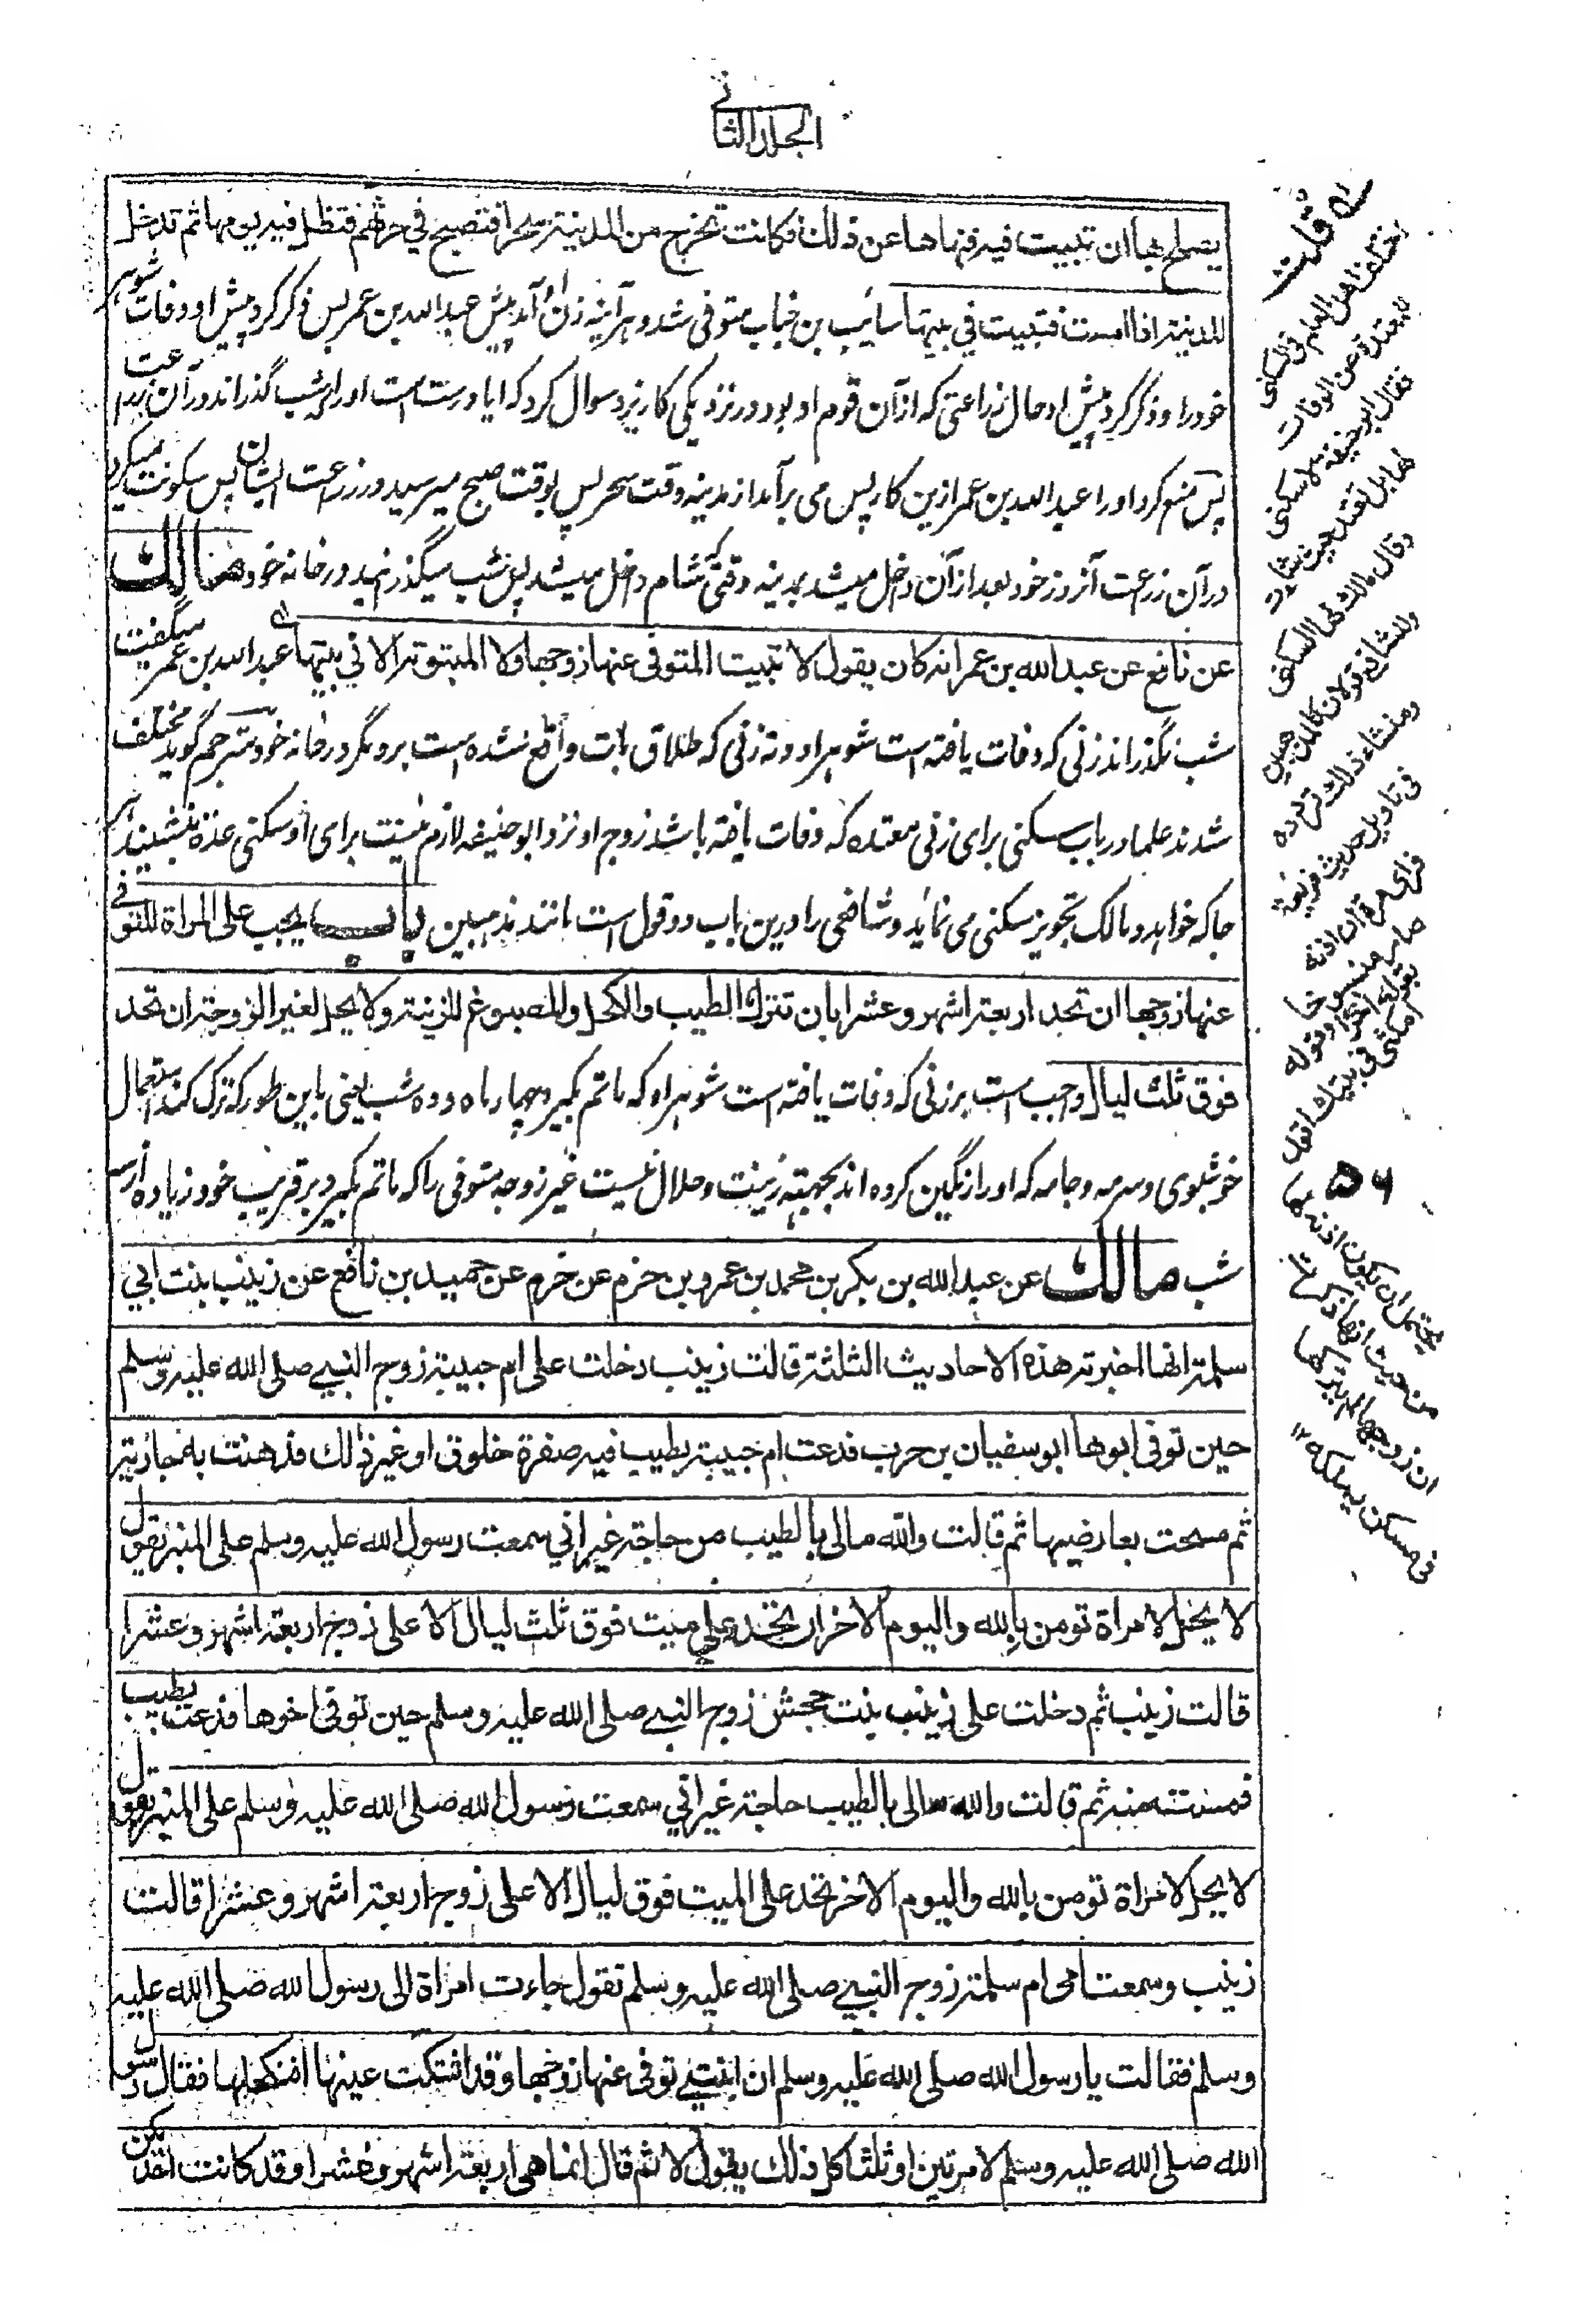 الجلد الثاني
يصلح بها ان تبيت فيه فنهاها عن ذلك فكانت تخرج من المدينة سحرا فتصبح في حرثهم فتظل فيه يومها ثم تدخل
المدينة اذا امست فتبيت في بيتها سائب بن خباب متوفى شد و هر آينه زن او آمد پيش عبدالله بن عمر پس ذكر كرد پيش او وفات شوهر
خود را و ذكر كرد پيش او حال زراعتى كه از آن قوم او بود در نزديكى كاريز و سوال كرد كه ايا درست است او را كه شب گذراند در آن زراعت
پس منع كرد او را عبدالله بن عمر ازين كار پس مى برآمد از مدينه وقت سحر پس بوقت صبح ميرسيد در زراعت ايشان پس سكونت ميكرد
در آن زراعت آنروز خود بعد از آن داخل ميشد بمدينه وقتى كه شام داخل ميشد پس شب ميگذرانيد در خانه خود مالك
عن نافع عن عبد الله بن عمر انه كان يقول لا تبيت المتوفى عنها زوجها ولا المبتوتة الا في بيتها عبدالله بن عمر ميگفت
شب نگذراند زنى كه وفات يافته است شوهر او و نه زنى كه طلاق بات واقع شده است برو مگر در خانه خود مترجم گويد مختلف
شدند علما در باب سكنى براى زنى معتده كه وفات يافته باشد زوج او نزد ابو حنيفه لازم نيست براى او سكنى عده بنشيند هر
جا كه خواهد و مالك تجويز سكنى مى نمايد و شافعى را درين باب دو قول است مانند مذهبين باب يجب على المراة المتوفى
عنها زوجها ان تحد اربعة اشهر وعشرا بان تترك الطيب والكحل والمصبوغ للزينة ولا يحل لغير الزوجة ان تحد
فوق ثلث ليال واجب است بر زنى كه وفات يافته است شوهر او كه ماتم بگيرد چهار ماه و ده شب يعنى باين طور كه ترك كند استعمال
خوشبوى و سرمه و جامه كه او را رنگين كرده اند بجهة زينت و حلال نيست غير زوجه متوفى را كه ماتم بگيرد بر قريب خود زياده از سه
شب مالك عن عبد الله بن بكر بن محمد بن عمرو بن حزم عن حزم عن حميد بن نافع عن زينب بنت ابي
سلمة انها اخبرته هذه الاحاديث الثلثة قالت زينب دخلت على ام حبيبة زوج النبي صلى الله عليه وسلم
حين توفى ابوها ابو سفيان بن حرب فدعت ام حبيبة بطيب فيه صفرة خلوق او غير ذلك فدهنت به جارية
ثم مسحت بعارضيها ثم قالت والله مالى بالطيب من حاجة غير اني سمعت رسول الله صلى الله عليه وسلم على المنبر يقول
لا يحل لامراة تومن بالله واليوم الاخر ان تحد على ميت فوق ثلث ليال الا على زوج اربعة اشهر وعشرا
قالت زينب ثم دخلت على زينب بنت جحش زوج النبي صلى الله عليه وسلم حين توفى اخوها فدعت بطيب
فمست منه ثم قالت والله مالى بالطيب حاجة غير اني سمعت رسول الله صلى الله عليه وسلم على المنبر يقول
لا يحل لامراة تومن بالله واليوم الاخر تحد على الميت فوق ليال الا على زوج اربعة اشهر وعشرا قالت
زينب وسمعت امى ام سلمة زوج النبي صلى الله عليه وسلم تقول جاءت امراة الى رسول الله صلى الله عليه
وسلم فقالت يا رسول الله صلى الله عليه وسلم ان ابنتي توفى عنها زوجها وقد اشتكت عينها افنكحلها فقال رسول
الله صلى الله عليه وسلم لا مرتين او ثلثا كل ذلك يقول لا ثم قال انما هي اربعة اشهر وعشرا وقد كانت احدىكن
قلت
اختلف اهل العلم في السكنى
للمعتدة عن الوفات
فقال ابو حنيفة لا سكنى
لها بل تعتد حيث شاءت
وقال مالك لها السكنى
وللشافعي قولان كالمذهبين
ومنشاء ذلك تردده
في تاويل حديث فريعة
فراى مرة ان اذنه
صار منسوخا
بقوله اخرا
امكثي في بيتك
۵۶
يحتمل ان يكون اذنه لها
من حيث انها ذكرت
ان زوجها لم يتركها
في مسكن يملكه ۱۲